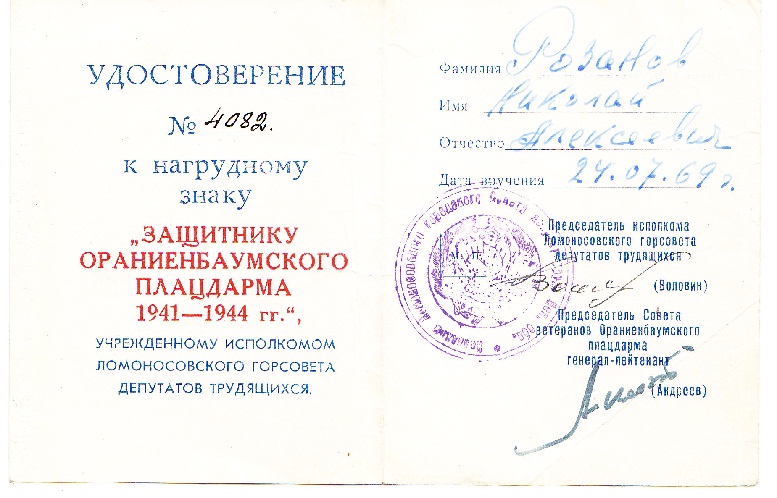 УДОСТОВЕРЕНИЕ
№ 4082.
к нагрудному
знаку
„ЗАЩИТНИКУ
ОРАНИЕНБАУМСКОГО
ПЛАЦДАРМА
1941—1944 гг.“,
УЧРЕЖДЕННОМУ ИСПОЛКОМОМ
ЛОМОНОСОВСКОГО ГОРСОВЕТА
ДЕПУТАТОВ ТРУДЯЩИХСЯ.
Фамилия Розанов
Имя Николай
Отчество Алексеевич
Дата вручения 24.07.69 г.
Председатель исполкома
Ломоносовского горсовета
депутатов трудящихся
(Воловик)
Председатель Совета
ветеранов Ораниенбаумского
плацдарма
генерал-лейтенант
(Андреев)